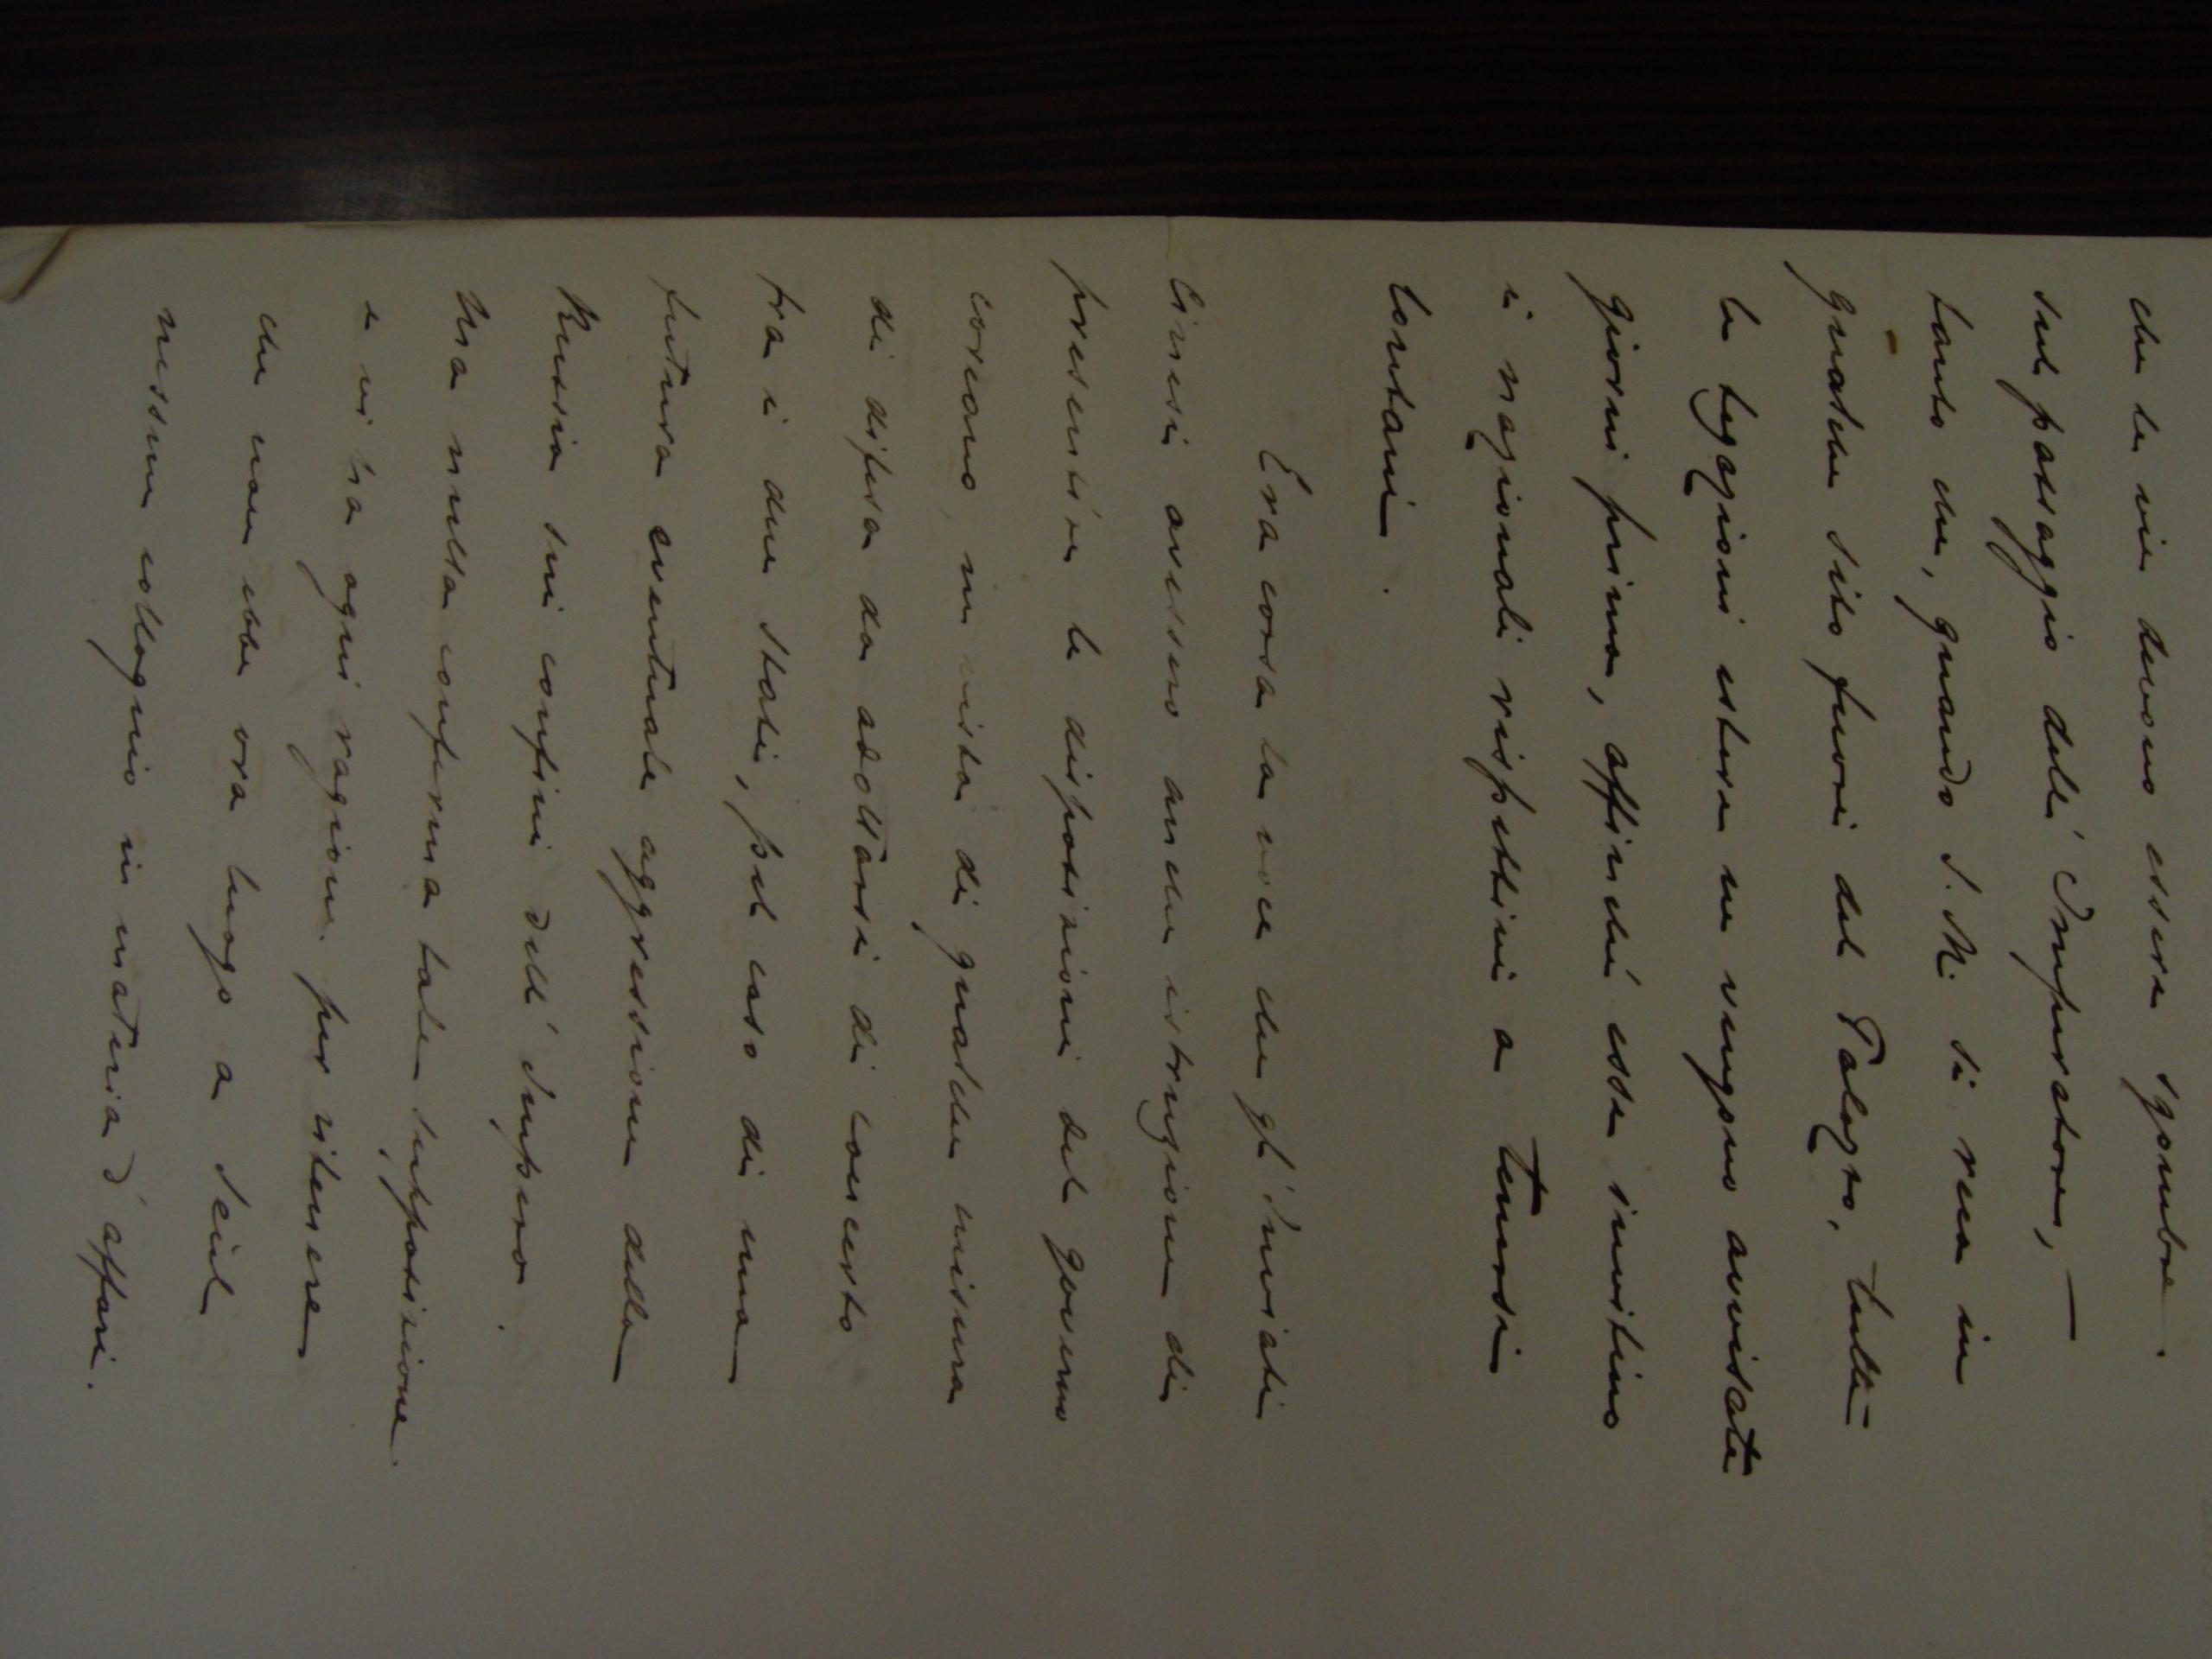 che le vie devono essere sgombre.
sul passaggio dell'Imperatore, —
tanto che, quando S. M. si reca in
qualche sito fuori del Palazzo, tutte
le legazioni estere ne vengono avvisate
giorni prima, affinché esse invitino
i nazionali rispettivi a tenersi
lontani.
Era corsa la voce che gl'Inviati
Cinesi avessero anche istruzione di
presentire le disposizioni del governo
coreano, in vista di qualche misura
di difesa da adottarsi di concerto
tra i due Stati, pel caso di una
futura eventuale aggressione della
Russia sui confini dell'Impero.
Ma nulla conferma tale supposizione.
e vi ha ogni ragione per ritenere
che non ebbe ora luogo a Seul
nessun colloquio in materia d'affari.